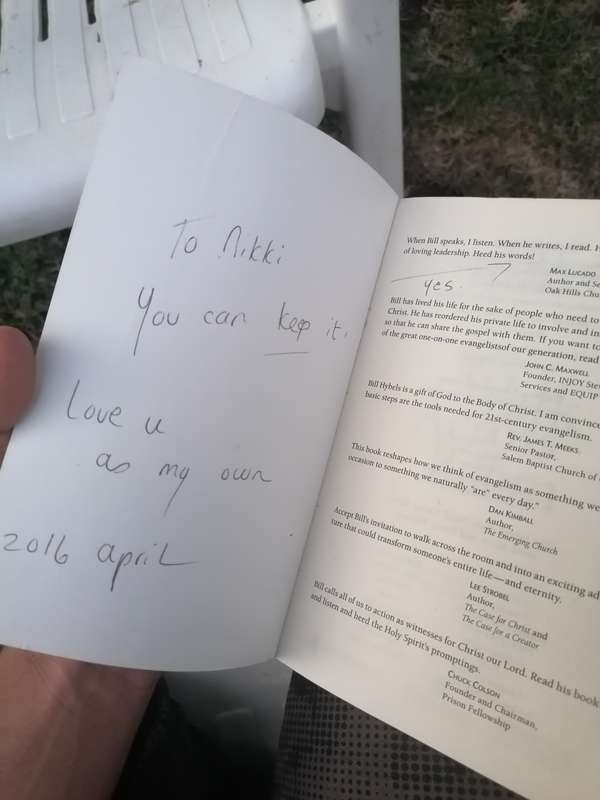 To Nikki
You can kep it.
Love u
as my own
2016 april
When Bill speaks, I listen. When he writes, I read. H
of loving leadership. Heed his words!
Max Lucado
Author and Se
Oak Hills Chu
yes.
Bill has lived his life for the sake of people who need to
Christ. He has reordered his private life to involve and in
so that he can share the gospel with them. If you want to
of the great one-on-one evangelistsof our generation, read
John C. Maxwell
Founder, INJOY Ste
Services and EQUIP
Bill Hybels is a gift of God to the Body of Christ. I am convince
basic steps are the tools needed for 21st-century evangelism.
Rev. James T. Meeks
Senior Pastor,
Salem Baptist Church of
This book reshapes how we think of evangelism as something we
occasion to something we naturally "are" every day."
Dan Kimball
Author,
The Emerging Church
Accept Bill's invitation to walk across the room and into an exciting ad
ture that could transform someone's entire life—and eternity.
Lee Strobel
Author,
The Case for Christ and
The Case for a Creator
Bill calls all of us to action as witnesses for Christ our Lord. Read his book
and listen and heed the Holy Spirit's promptings.
Chuck Colson
Founder and Chairman,
Prison Fellowship